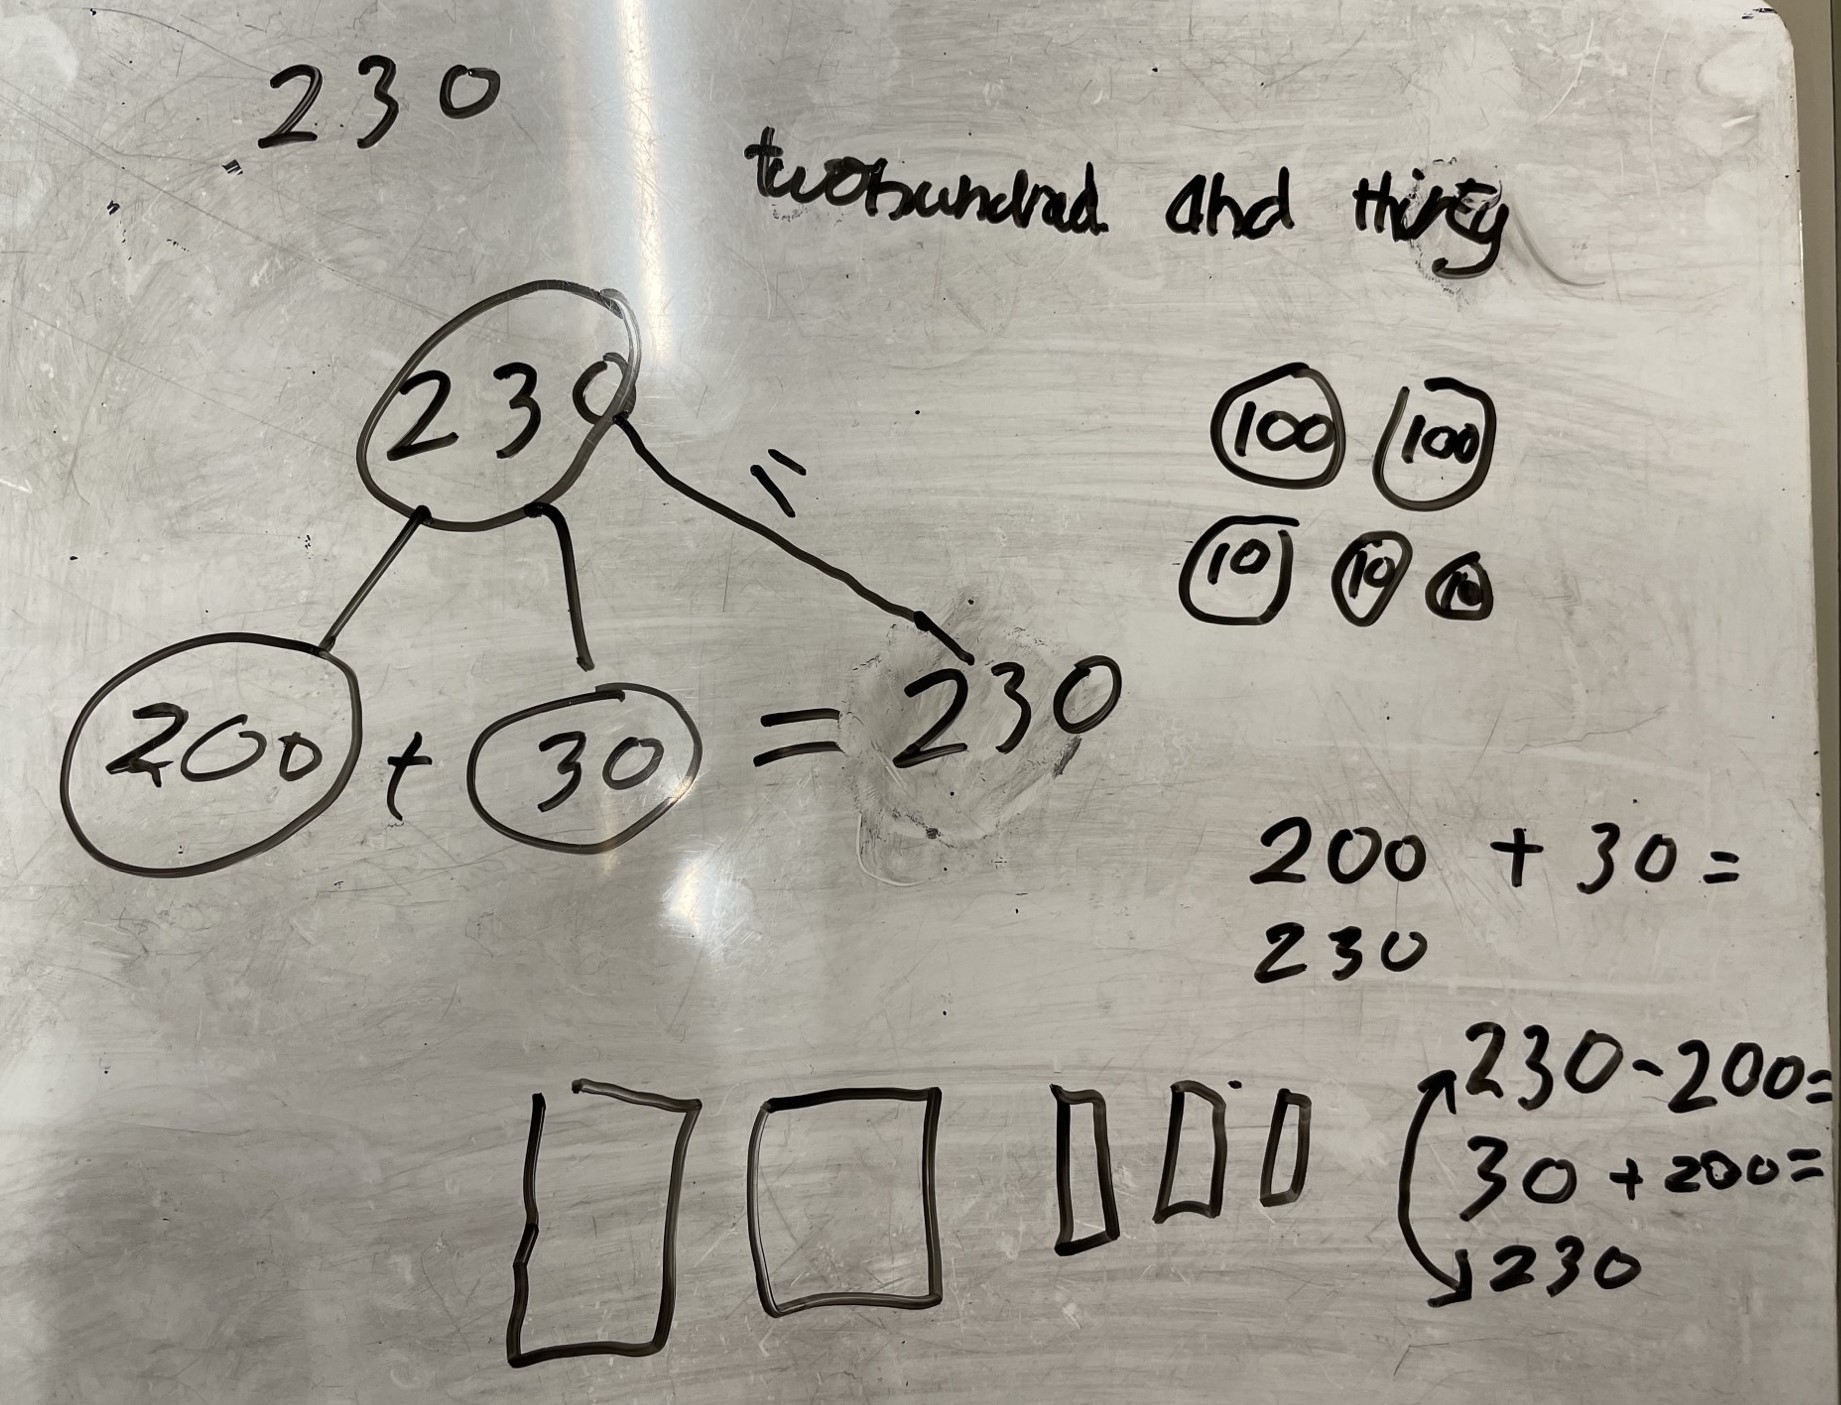 230
twohundrad and thirty
230
=
100 100
10 10 10
200 + 30 = 230
200 + 30 =
230
230-200=
30 + 200=
230